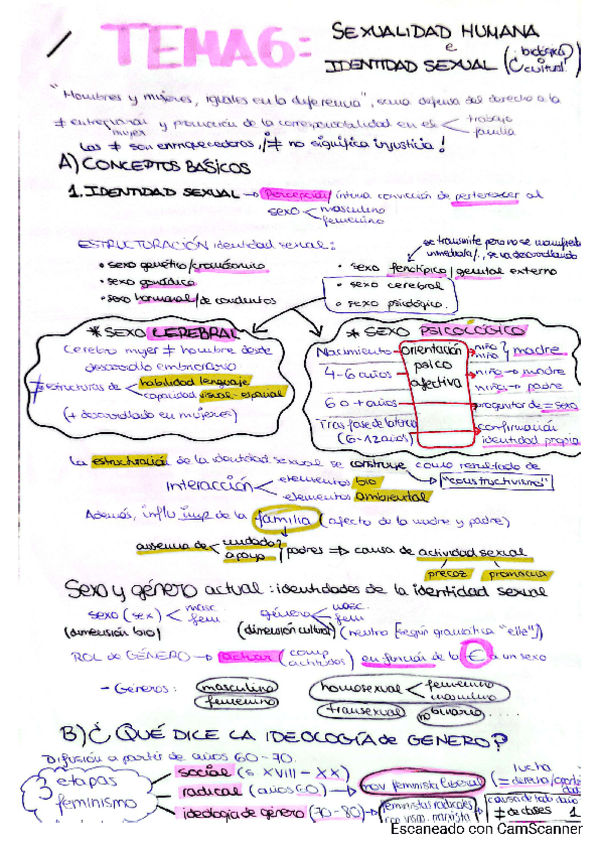 TEMA 6: SEXUALIDAD HUMANA
e
IDENTIDAD SEXUAL (¿biológica? ¿cultural?)
"Hombres y mujeres, iguales en la diferencia", es una defensa del derecho a la
≠ entre y promoción de la corresponsabilidad en el < trabajo
mujer familia
Las ≠ son enriquecedoras, ¡≠ no significa injusticia!
A) CONCEPTOS BÁSICOS
1. IDENTIDAD SEXUAL → percepción/ íntima convicción de pertenecer al
sexo < masculino
femenino
ESTRUCTURACIÓN identidad sexual:
se transmite pero no se manifiesta
inmediata/., se va desarrollando
• sexo genético/cromosómico
• sexo gonádico
• sexo hormonal/de conductos
• sexo fenotípico/genital externo
• sexo cerebral
• sexo psicológico.
* SEXO CEREBRAL
Cerebro mujer ≠ hombre desde
desarrollo embrionario
≠ estructuras de < habilidad lenguaje
capacidad visual-espacial
(+ desarrollado en mujeres)
* SEXO PSICOLÓGICO
Nacimiento → niña niño } madre
4-6 años → niño → madre
niña → padre
6 o + años → progenitor de = sexo
Tras fase de latencia
(6-12 años) → confirmación
identidad propia
orientación
psico
afectiva
La estructuración de la identidad sexual se construye como resultado de
interacción < elementos bio
elementos ambiental
→ "constructivismo"
Además, influ. imp. de la familia (afecto de la madre y padre)
ausencia de < cuidado
apoyo / padres ⇒ causa de actividad sexual
precoz promiscua
Sexo y género actual: identidades de la identidad sexual
sexo (sex) < masc.
fem
género < masc.
fem
(dimensión bio) (dimensión cultural) (neutro [según gramática "elle"])
ROL de GÉNERO → actuar (comp actitudes) en función de la € a un sexo
- Géneros: masculino
femenino
homosexual < femenino
masculino
transexual no binario ...
B) ¿QUÉ DICE LA IDEOLOGÍA de GÉNERO?
Difusión a partir de años 60-70.
3 etapas
feminismo
social (s. XVIII - XX)
radical (años 60) → mov. feminista liberal (lucha = derecho/
ideología de género (70-80) → feministas radicales
marxista
causa de todo daño
≠ de clases
1
Escaneado con CamScanner